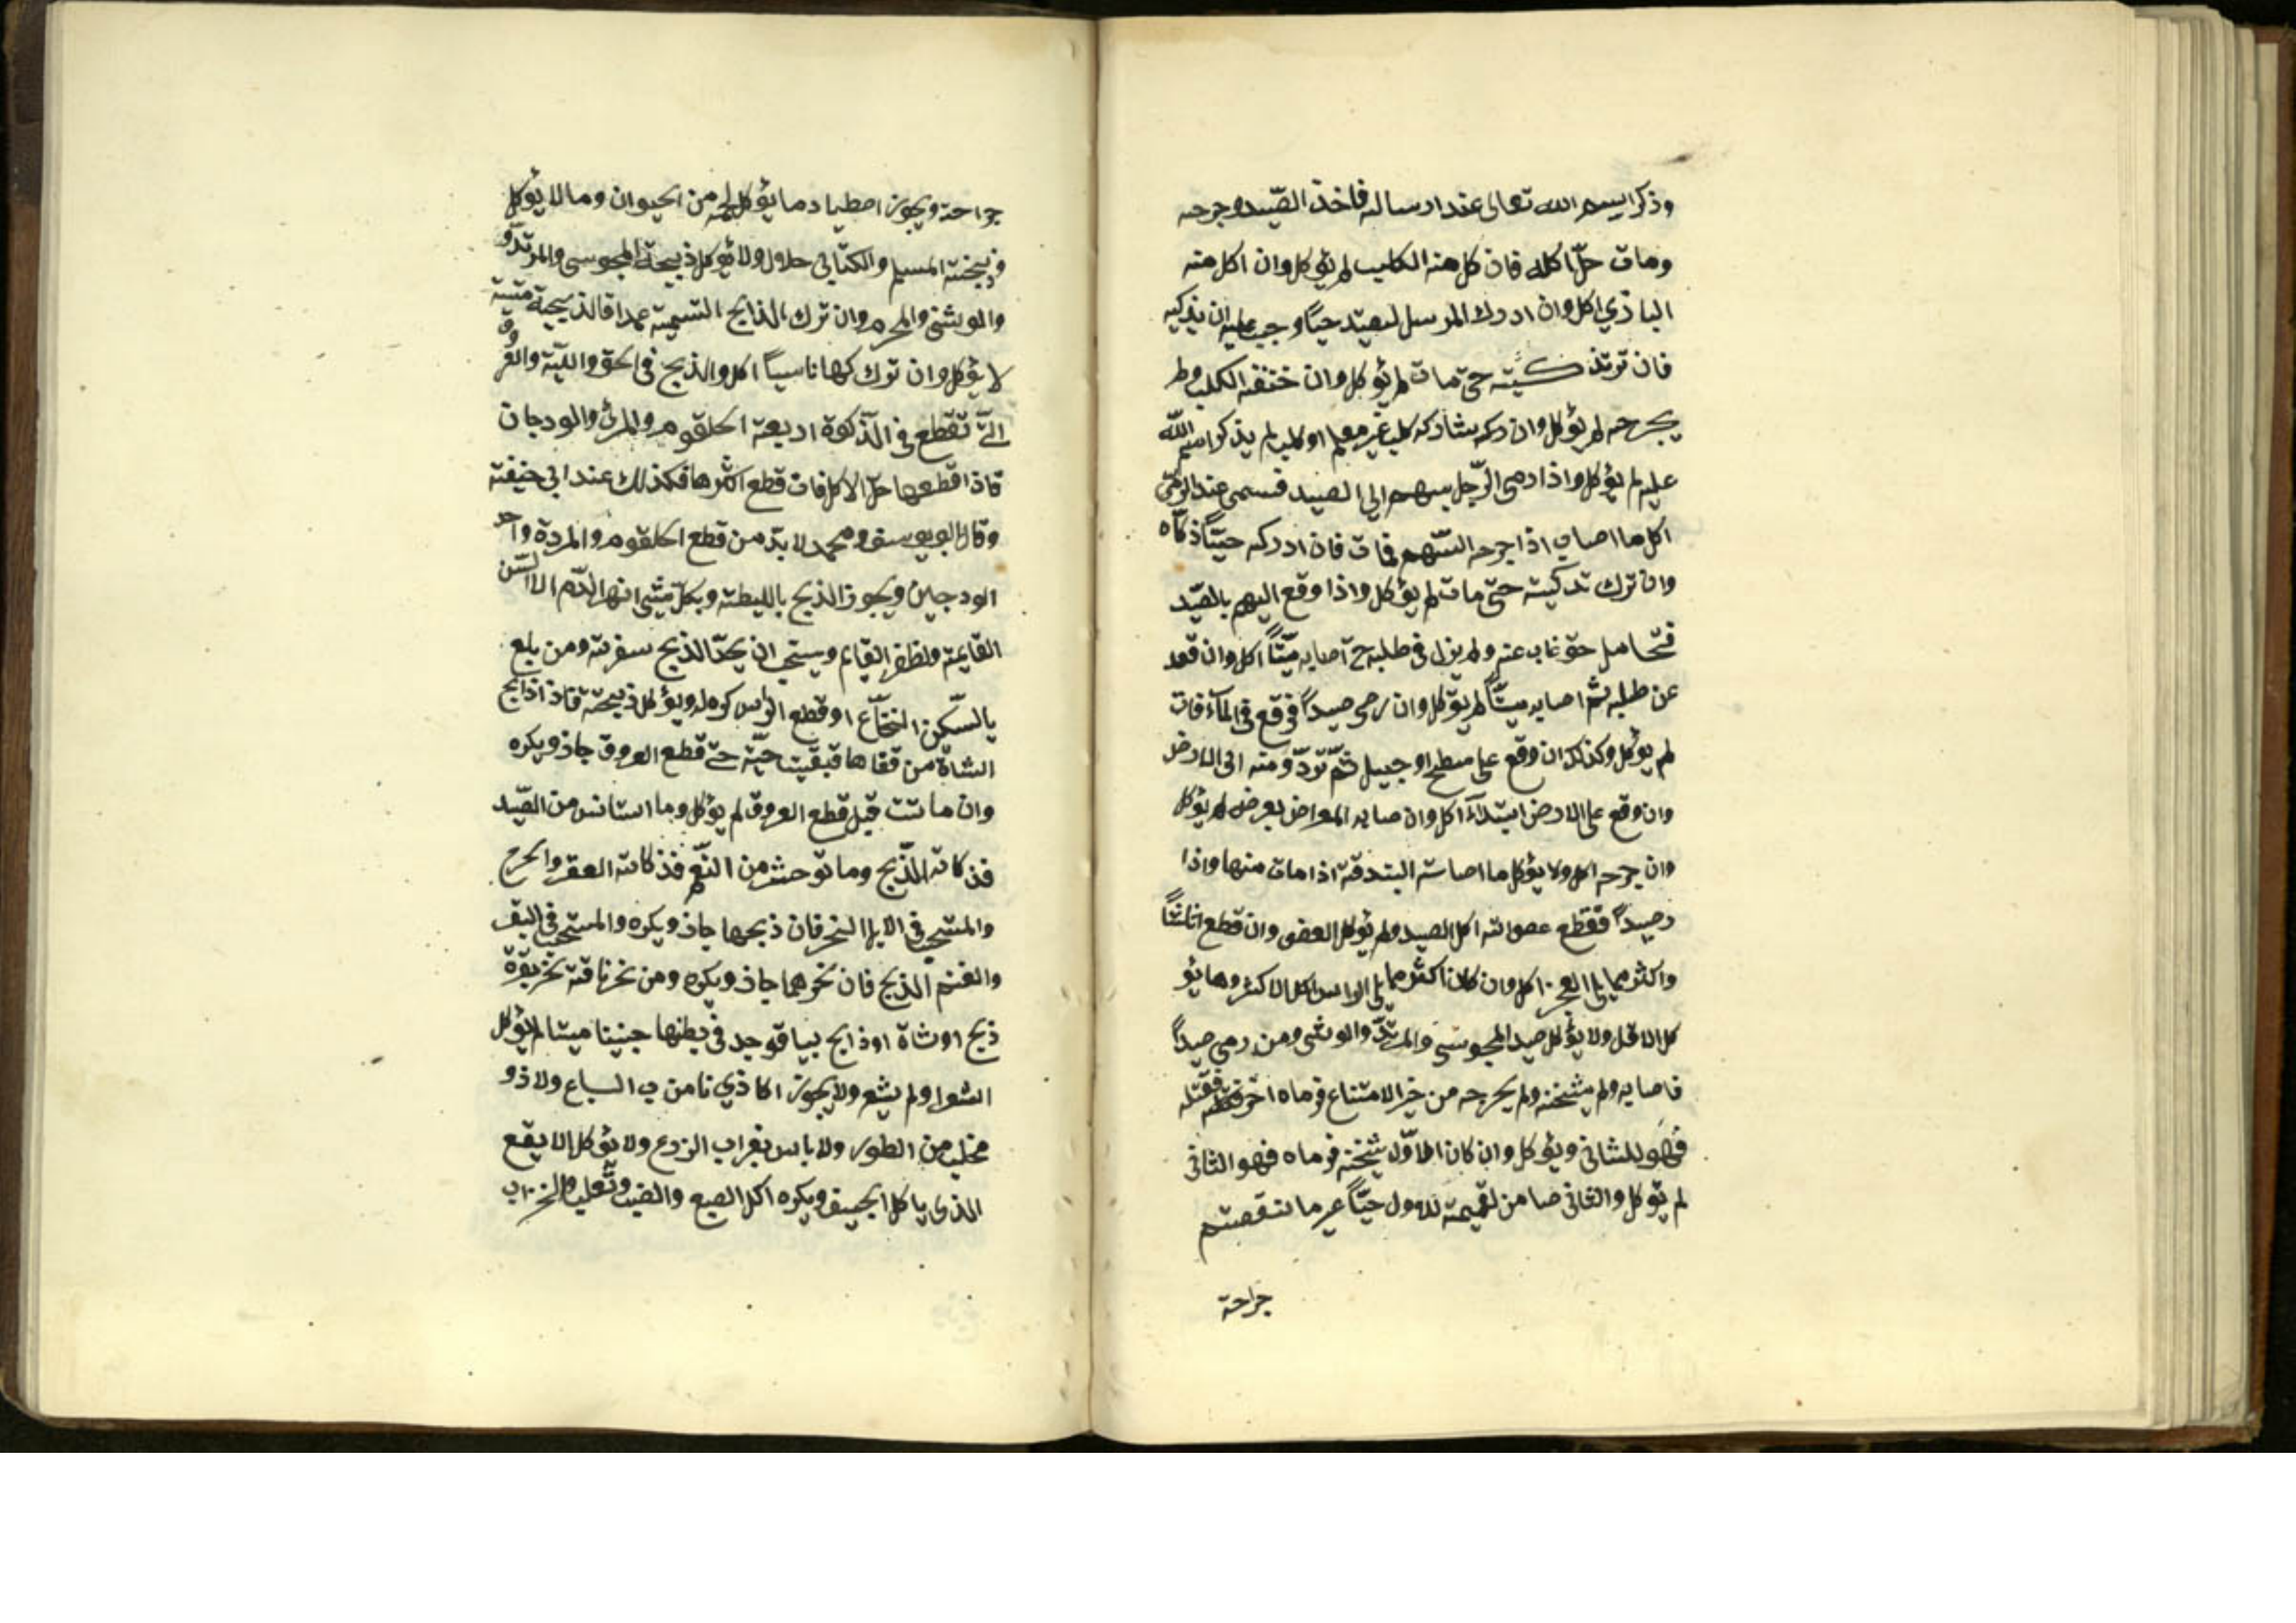 وذكر اسم الله تعالى عند ارساله فاخذ الصّيد وجرحه
ومات حلّ اكله فان كل منه الكلب لم يؤكل وان اكل منه
الباذي اكل وان ادرك المرسل لصيد حيّاً وجب عليه ان يذكيه
فان ترتذكيته حتى مات لم يؤكل وان خنقه الكلب ولم
يجرحه لم يؤكل وان دكه شاركه كلب غير معلم او كلب لم يذكر اسم الله
عليه لم يؤكل واذا رمى الرّجل بسهم الى الصيد فسمى عند الرمى
اكل ما اصاب اذا جرحه السّهم فمات فان ادركه حيّاً ذكاه
وان ترك تدكيته حتى مات لم يؤكل واذا وقع اليهم بالصّيد
فتحامل حتى غاب عنه ولم يزل فى طلبه ح اصابه ميّتاً اكل وان قعد
عن طلبه ثم اصابه ميّتاً لم يؤكل وان رمى صيداً فوقع فى المآء فات
لم يؤكل وكذلك ان وقع على سطح او جبيل ثم تردّ ومنه الى الارض
وان وقع على الارض ابتدآءً اكل وان صابه المعراض بعرضه لم يؤكل
وان جرحه اكل ولا يؤكل ما اصابته البندقة اذا مات منها واذا
رصيداً فقطع عصوامنه اكل الصيد ولم يؤكل العضى وان قطع اثلاثاً
واكثر مما يلى العجز اكل وان كان اكثر مما يلى الراس اكل الاكثر وما يؤ
كل الاقل ولا يؤكل صيد المجوسى والمرتدّ والوثنى ومن رمى صيداً
فاصابه ولم يثخنه ولم يخرجه من خيز الامتناع فرماه اخر فقتله
فهو للثانى ويؤكل وان كان الاوّل ثخنه فرماه فهو الثانى
لم يؤكل والثانى ضامن لقيمته للاول حيّاً غير ما نقصتهم
جراحة
جراحة ويجوز اصطياد ما يؤكل لحمه من الحيوان وما لا يؤكل
وذبيحته المسلم والكتابى حلال ولا يؤكل ذبيحة المجوسى والمرتدّ و
والوشنى والمحرم وان ترك الذابح التسمية عمدا فالذبيحة ميتة
لا يؤكل وان تركها ناسياً اكل والذبح فى الحق والليّة والعروق
الّتى تقطع فى الذكوة اربعة الحلقوم والمرئ والودجان
فاذا قطعها حلّ الاكل فان قطع اكثرها فكذلك عند ابى حنيفة
وقال ابو يوسف ومحمد لا بدّ من قطع الحلقوم والمردة واحد
الودجين ويجوز الذبح بالليطة وبكلّ شئ انهر الدّم الا السّن
القايمة ولظفر القايم ويستحب ان يحدّ الذبح سفرته ومن بلغ
بالسّكين النخاع او قطع الراس كره له ويؤكل ذبيحته فاذ اذابح
الشاة من قفاها فبقيت حيّة حتى قطع العروق جاز ويكره
وان ماتت قبل قطع العروق لم يؤكل وما استانس من الصّيد
فذكاته الذّبح وما توحش من النّعم فذكاته العقر والجرح
والمستحب فى الابل النحر فان ذبحها جاز ويكره والمستحب فى البقر
والغنم الذبح فان نحرهما جاز ويكره ومن نحر ناقة نحر بقرة
ذبح او شاة او ذابح بيبا فوجد فى بطنها جنينا ميتا لم يؤكل
اشعر او لم يشعر ولا يجوز اكا ذي نا من ب السباع ولا ذو
مخلب من الطور ولا باس بغراب الزرع ولا يؤكل الابقع
الذى ياكل الجيف ويكره اكل الضبع والضب وثعلب والخراب